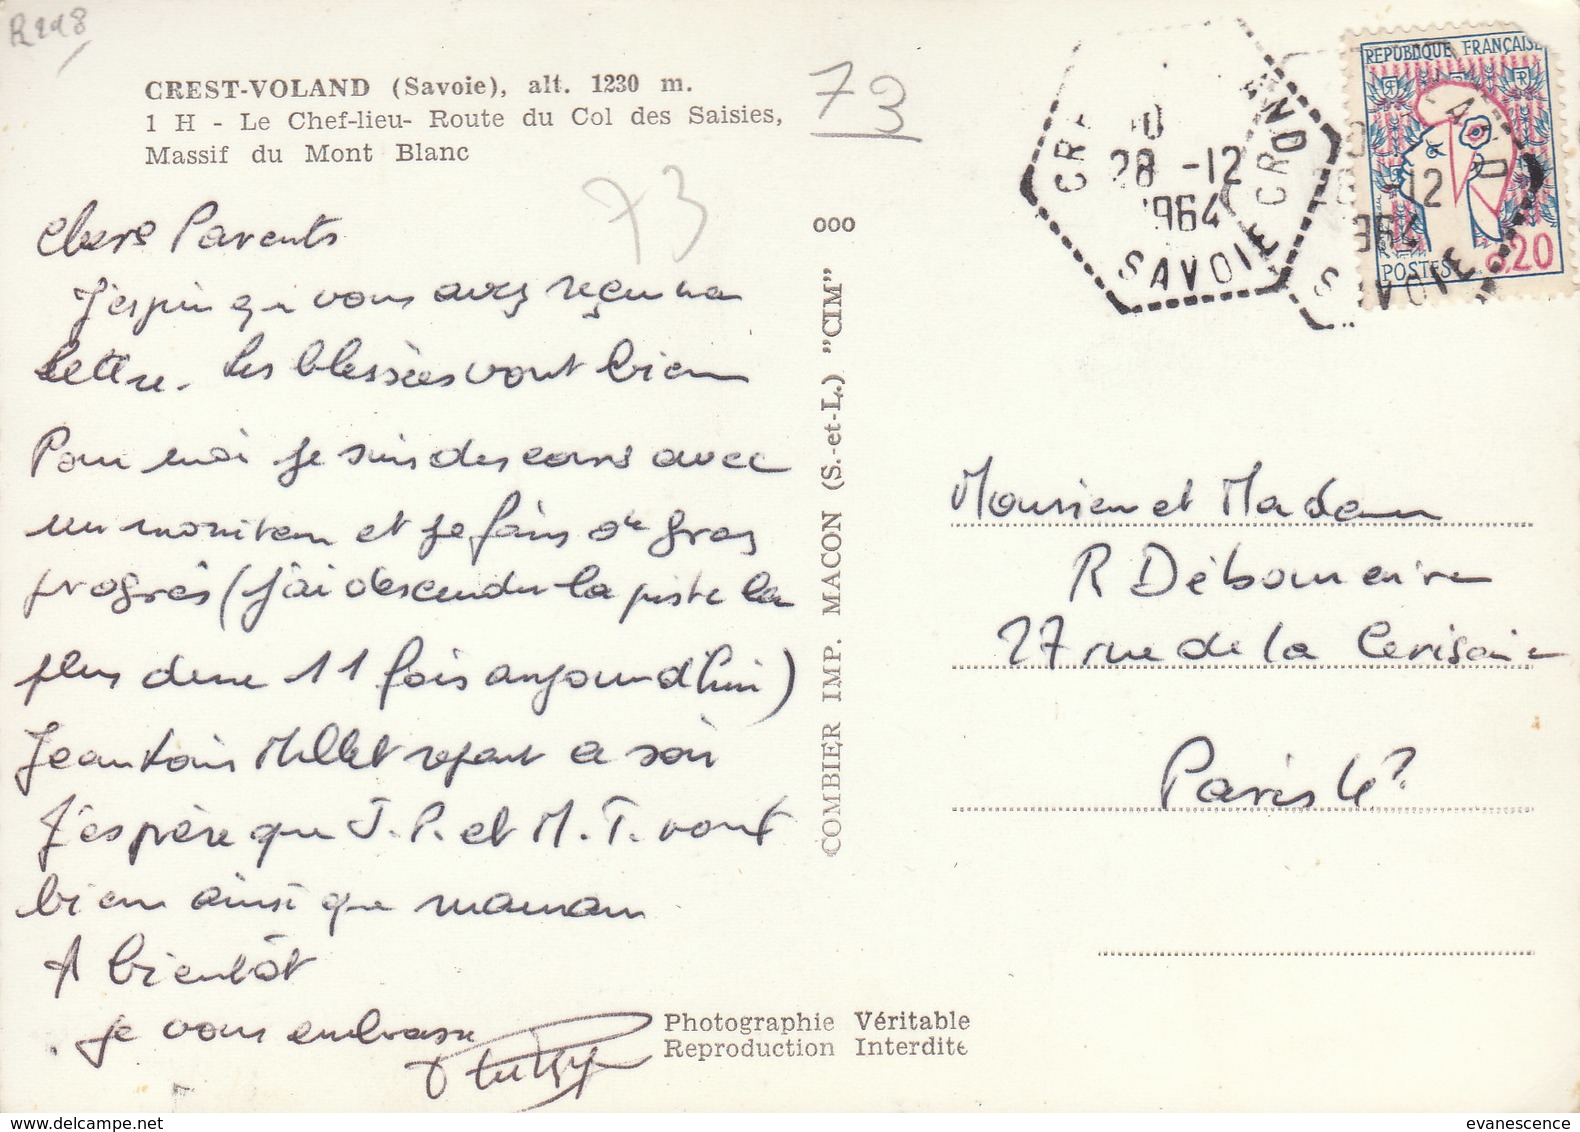 R228
CREST-VOLAND (Savoie), alt. 1230 m.
1 H - Le Chef-lieu- Route du Col des Saisies,
Massif du Mont Blanc
73
73
ooo
Chers Parents
J'espère que vous avez reçu ma
lettre. Les blessées vont bien
Pour moi je suis des cours avec
un moniteur et je fais de gros
progrès (j'ai descendu la piste la
plus dure 11 fois aujourd'hui)
Jean Louis Millet repart ce soir
J'espère que J. P. et M. T. vont
bien ainsi que maman
A bientôt
je vous embrasse
COMBIER IMP. MACON (S.-et-L.) "CIM"
28 -12
1964
SAVOIE
-12
SAVOIE
REPUBLIQUE FRANÇAISE
POSTES
0,20
Monsieur et Madame
R Débonnaire
27 rue de la Cerisaie
Paris 4e
Photographie Véritable
Reproduction Interdite
evanescence